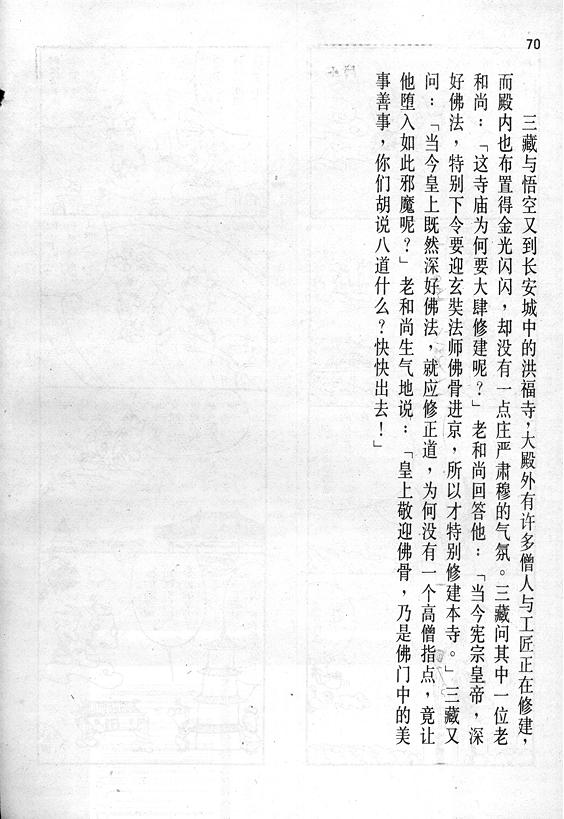 70
三藏与悟空又到长安城中的洪福寺，大殿外有许多僧人与工匠正在修建，
而殿内也布置得金光闪闪，却没有一点庄严肃穆的气氛。三藏问其中一位老
和尚：「这寺庙为何要大肆修建呢？」老和尚回答他：「当今宪宗皇帝，深
好佛法，特别下令要迎玄奘法师佛骨进京，所以才特别修建本寺。」三藏又
问：「当今皇上既然深好佛法，就应修正道，为何没有一个高僧指点，竟让
他堕入如此邪魔呢？」老和尚生气地说：「皇上敬迎佛骨，乃是佛门中的美
事善事，你们胡说八道什么？快快出去！」